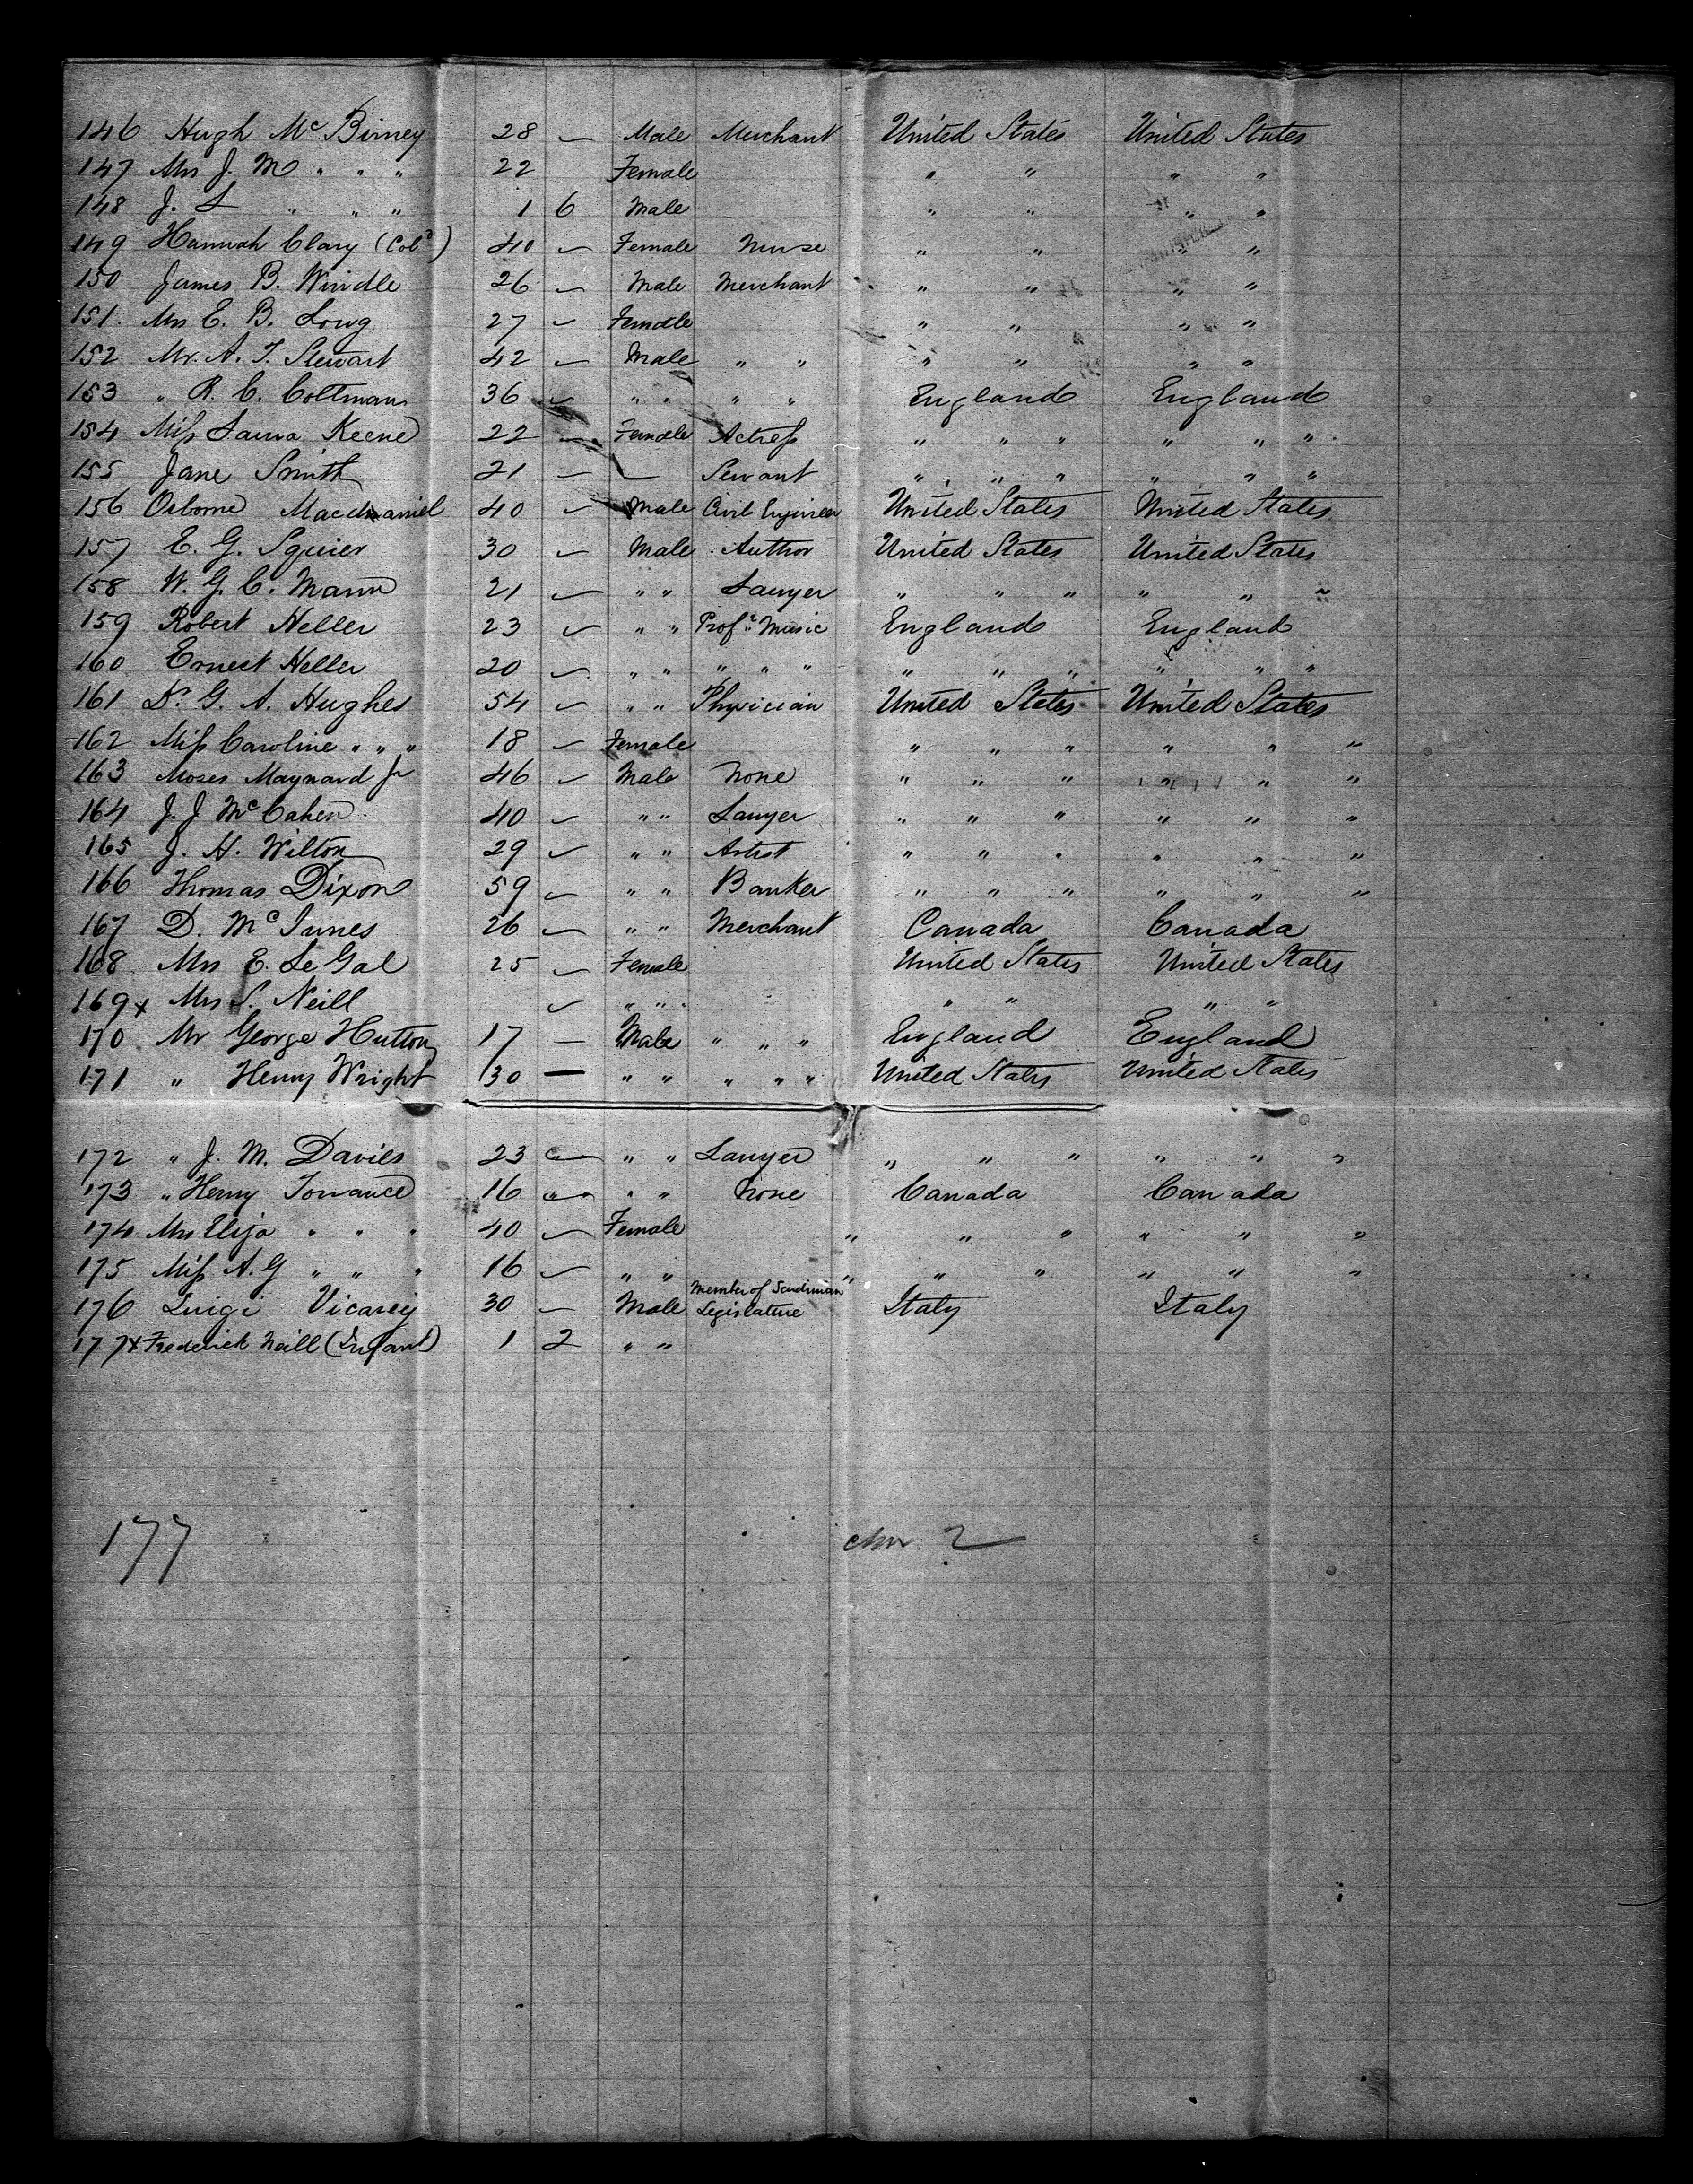 146 Hugh Mc Birney 28 – Male Merchant United States United States
147 Mrs J. M " " " 22 Female " " " "
148 J. S " " " 1 6 Male " " " "
149 Hannah Clary (Cold) 40 – Female Nurse " " " "
150 James B. Windle 26 – Male Merchant " " " "
151. Mrs E. B. Long 27 – Female " " " "
152 Mr. A. T. Stewart 42 – Male " " " " " "
153 " R. C. Coltman 36 – " " " " England England
154 Miss Laura Keene 22 – Female Actress " " " " " "
155 Jane Smith 21 – – Servant " " " " " "
156 Osborne Macdaniel 40 – Male Civil Engineer United States United States
157 E. G. Squier 30 – Male Author United States United States
158 W. G. C. Mann 21 – " " Lawyer " " " " " "
159 Robert Heller 23 – " " Profr Music England England
160 Ernest Heller 20 – " " " " " " " " " " "
161 Dr. G. A. Hughes 54 – " " Physician United States United States
162 Miss Caroline " " " 18 – Female " " " " " "
163 Moses Maynard Jr 46 – Male None " " " " " "
164 J. J McCahen 40 – " " Lawyer " " " " " "
165 J. H. Wilton 29 – " " Artist " " " " " "
166 Thomas Dixon 59 – " " Banker " " " " " "
167 D. McInnes 26 – " " Merchant Canada Canada
168 Mrs E. Le Gal 25 – Female United States United States
169x Mrs S. Neill – " " " " " "
170 Mr George Hutton 17 – Male " " " England England
171 " Henry Wright 30 – " " " " " United States United States
172 " J. M. Davies 23 – " " Lawyer " " " " " "
173 " Henry Torrance 16 – " " None Canada Canada
174 Mrs Eliza " " " 40 – Female " " " " " "
175 Miss A. G " " " 16 – " " " " " " " "
176 Luigi 30 – Male Member of Legislature Italy Italy
177x Frederick Neill (Infant) 1 2 " "
177 2